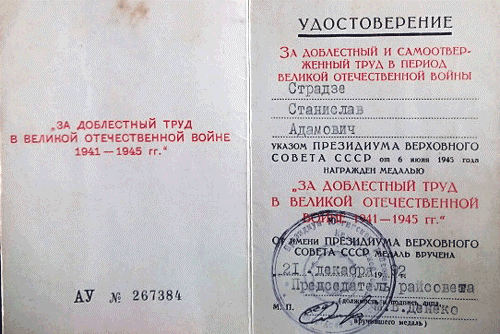 „ЗА ДОБЛЕСТНЫЙ ТРУД
В ВЕЛИКОЙ ОТЕЧЕСТВЕННОЙ ВОЙНЕ
1941—1945 гг.“
АУ № 267384
УДОСТОВЕРЕНИЕ
ЗА ДОБЛЕСТНЫЙ И САМООТВЕР-
ЖЕННЫЙ ТРУД В ПЕРИОД
ВЕЛИКОЙ ОТЕЧЕСТВЕННОЙ ВОЙНЫ
Страдзе
Станислав
Адамович
УКАЗОМ ПРЕЗИДИУМА ВЕРХОВНОГО
СОВЕТА СССР от 6 июня 1945 года
НАГРАЖДЕН МЕДАЛЬЮ
„ЗА ДОБЛЕСТНЫЙ ТРУД
В ВЕЛИКОЙ ОТЕЧЕСТВЕННОЙ
ВОЙНЕ 1941—1945 гг.“
От имени ПРЕЗИДИУМА ВЕРХОВНОГО
СОВЕТА СССР МЕДАЛЬ ВРУЧЕНА
21 декабря
Председатель райсовета
М. П.
Денеко
вручившего медаль)